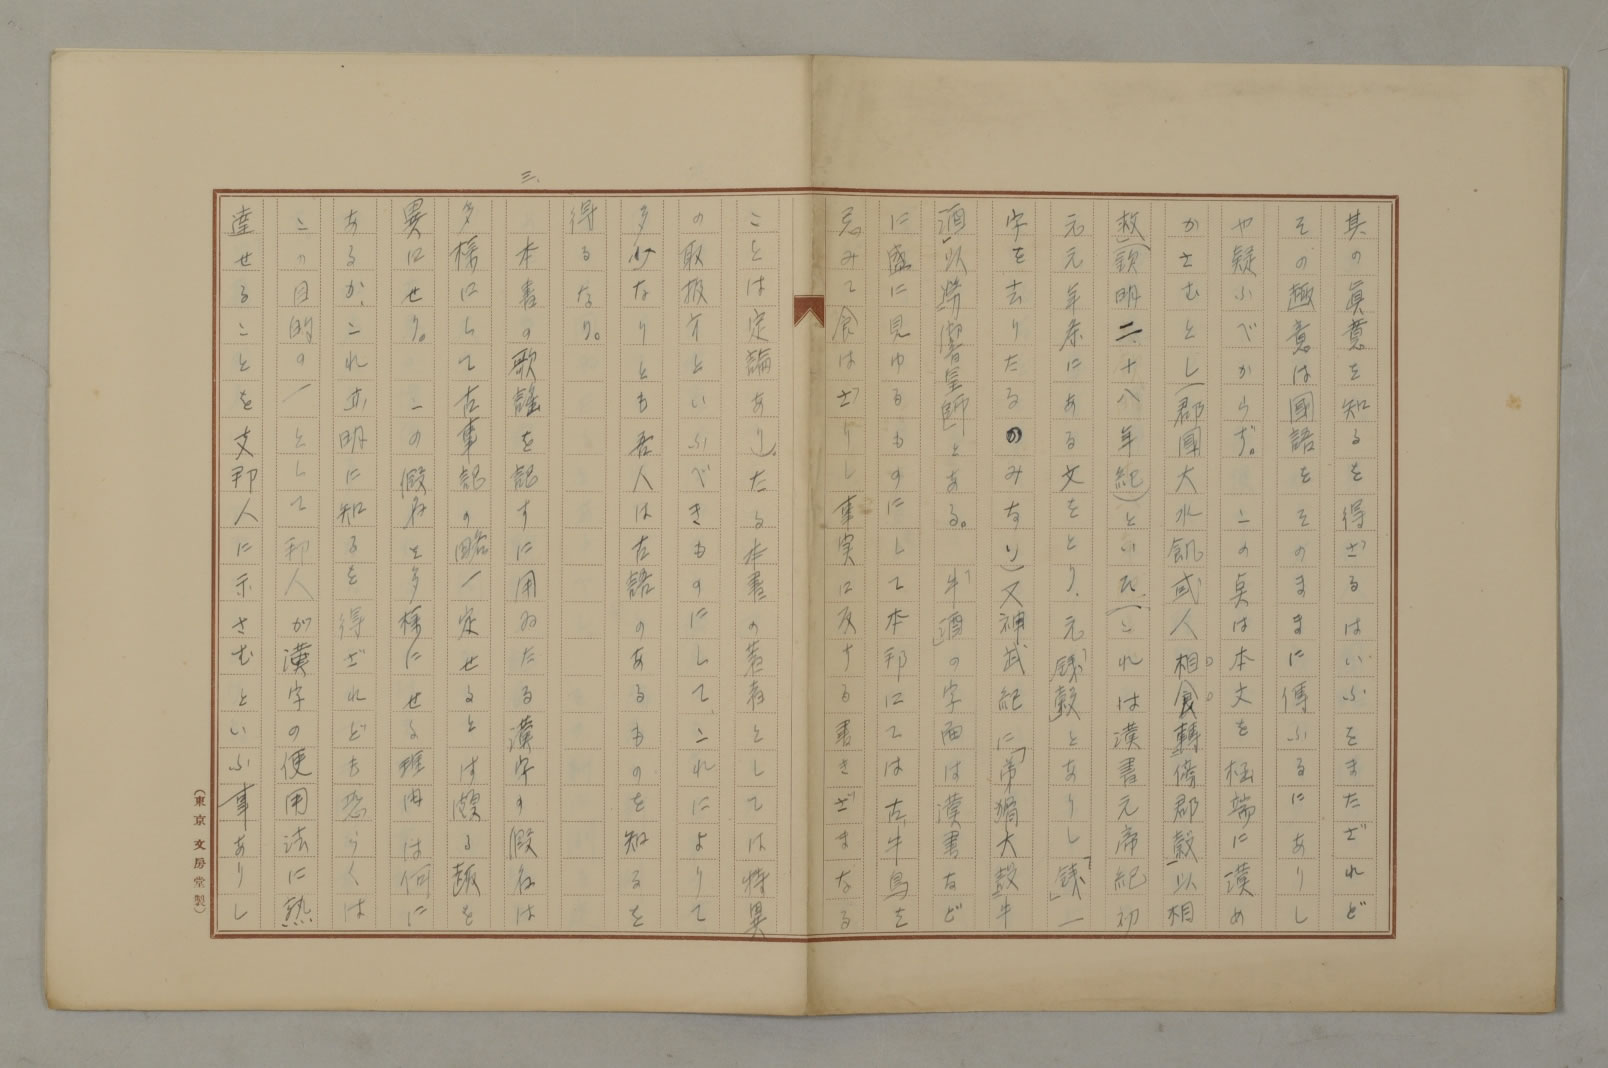 其の眞意を知るを得ざるはいふをまたざれど
その趣意は國語をそのままに傳ふるにありし
や疑ふべからず。この点は本文を極端に漢め
かさむとし「郡國大水飢或人相食轉傍郡穀以相
救」(欽明二十八年紀)といひ、(これは漢書元帝紀初
元元年条にある文をとり、元「錢穀」とありし「錢」一
字を去りたるのみなり)又神武紀に「弟猾大設牛
酒以勞饗皇師」とある。「牛酒」の字面は漢書など
に盛に見ゆるものにして本邦にては古牛馬を
忌みて食はざりし事実に反する書きざまなる
ことは定論あり。たる本書の著者としては特異
の取扱方といふべきものにして、これによりて
多少なりとも吾人は古語のあるものを知るを
得るなり。
三、
本書の歌謠を記すに用ゐたる漢字の假名は
多様にして古事記の略一定せるとは頗る趣を
異にせり。この假名を多様にせる理由は何に
あるか、これ亦明に知るを得ざれども恐らくは
この目的の一として邦人が漢字の使用法に熟
達せることを支那人に示さむといふ事ありし
(東京 文房堂製)